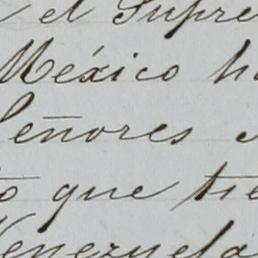 el Supre
México h
Señores
que tie
Venezuela